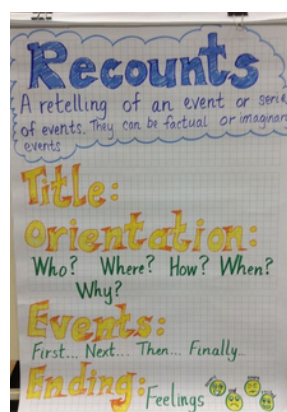 Recounts
A retelling of an event or
of events. They can be factual or
events
Title:
Orientation:
Who? Where? How? When?
Why?
Events:
First... Next... Then... Finally...
Ending: Feelings